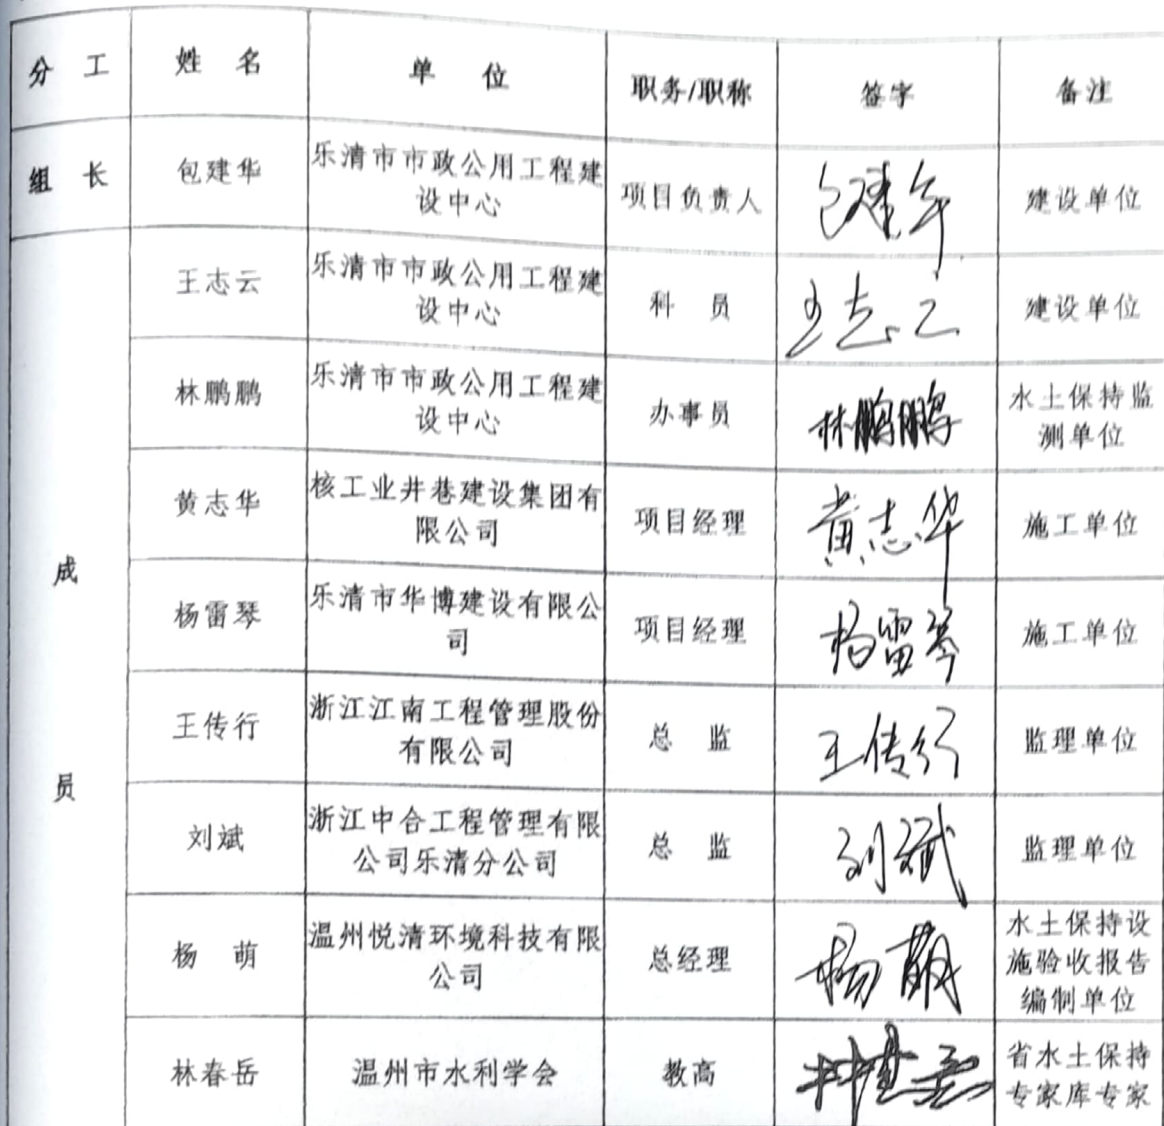 分 工 姓 名 单 位 职务/职称 签字 备注
组 长 包建华 乐清市市政公用工程建 项目负责人 包建华 建设单位
设中心
成 员
王志云 乐清市市政公用工程建 科 员 王志云 建设单位
设中心
林鹏鹏 乐清市市政公用工程建 办事员 林鹏鹏 水土保持监
设中心 测单位
黄志华 核工业井巷建设集团有 项目经理 黄志华 施工单位
限公司
杨雷琴 乐清市华博建设有限公 项目经理 杨雷琴 施工单位
司
王传行 浙江江南工程管理股份 总 监 王传行 监理单位
有限公司
刘斌 浙江中合工程管理有限 总 监 刘斌 监理单位
公司乐清分公司
杨 萌 温州悦清环境科技有限 总经理 杨萌 水土保持设
公司 施验收报告
编制单位
林春岳 温州市水利学会 教高 林春岳 省水土保持
专家库专家